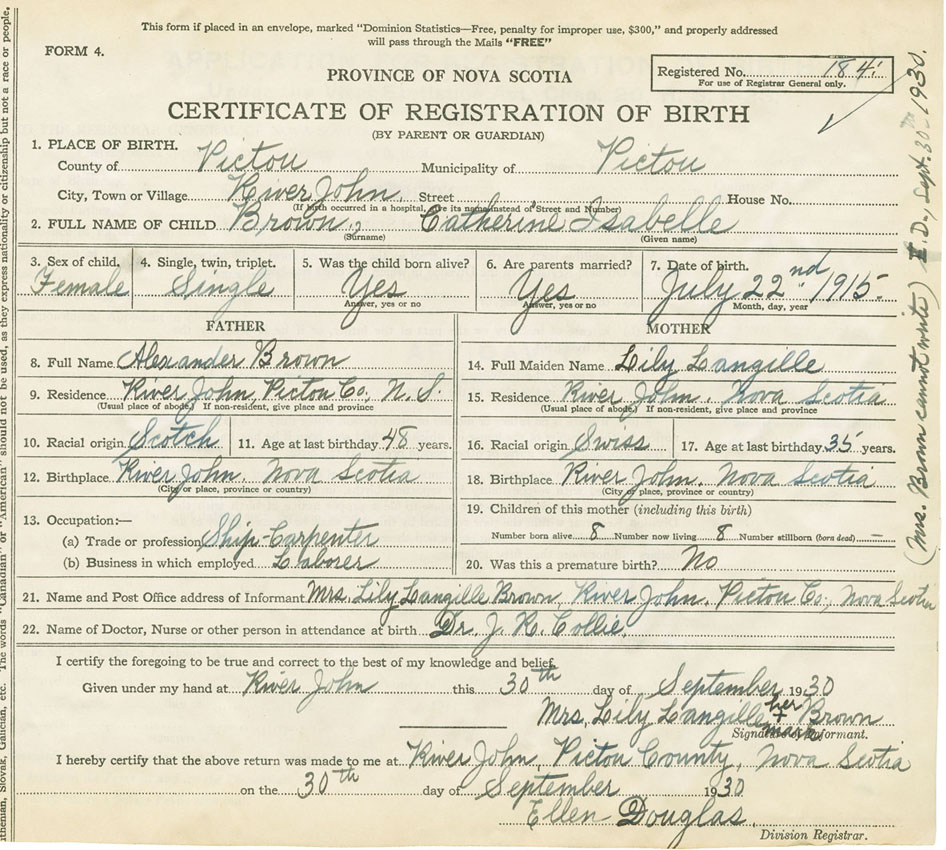 This form if placed in an envelope, marked "Dominion Statistics—Free, penalty for improper use, $300," and properly addressed
will pass through the Mails "FREE"
FORM 4.
PROVINCE OF NOVA SCOTIA
Registered No. 184
For use of Registrar General only.
CERTIFICATE OF REGISTRATION OF BIRTH
(BY PARENT OR GUARDIAN)
1. PLACE OF BIRTH.
County of Pictou Municipality of Pictou
City, Town or Village River John. Street House No.
(If birth occurred in a hospital, give its name instead of Street and Number)
2. FULL NAME OF CHILD Brown, Catherine Isabelle
(Surname) (Given name)
3. Sex of child. 4. Single, twin, triplet. 5. Was the child born alive? 6. Are parents married? 7. Date of birth.
Female Single Yes Yes July 22nd 1915
Answer, yes or no Answer, yes or no Month, day, year
FATHER MOTHER
8. Full Name Alexander Brown 14. Full Maiden Name Lily Langille
9. Residence River John, Pictou Co., N. S. 15. Residence River John. Nova Scotia
(Usual place of abode.) If non-resident, give place and province (Usual place of abode.) If non-resident, give place and province
10. Racial origin Scotch 11. Age at last birthday 48 years. 16. Racial origin Swiss 17. Age at last birthday 35 years.
12. Birthplace River John. Nova Scotia 18. Birthplace River John. Nova Scotia
(City or place, province or country) (City or place, province or country)
13. Occupation:— 19. Children of this mother (including this birth)
(a) Trade or profession Ship-Carpenter Number born alive 8 Number now living 8 Number stillborn (born dead) —
(b) Business in which employed Laborer 20. Was this a premature birth? No
21. Name and Post Office address of Informant Mrs. Lily Langille Brown, River John. Pictou Co., Nova Scotia
22. Name of Doctor, Nurse or other person in attendance at birth Dr. J. R. Collie.
I certify the foregoing to be true and correct to the best of my knowledge and belief.
Given under my hand at River John this 30th day of September 1930
Mrs. Lily Langille her + mark Brown
Signature of Informant.
I hereby certify that the above return was made to me at River John, Pictou County, Nova Scotia
on the 30th day of September 1930
Ellen Douglas
Division Registrar.
(Mrs. Brown cannot write) E. D., Sept. 30th 1930.
Slovak, Galician, etc. The words "Canadian" or "American" should not be used, as they express nationality or citizenship but not a race or people.